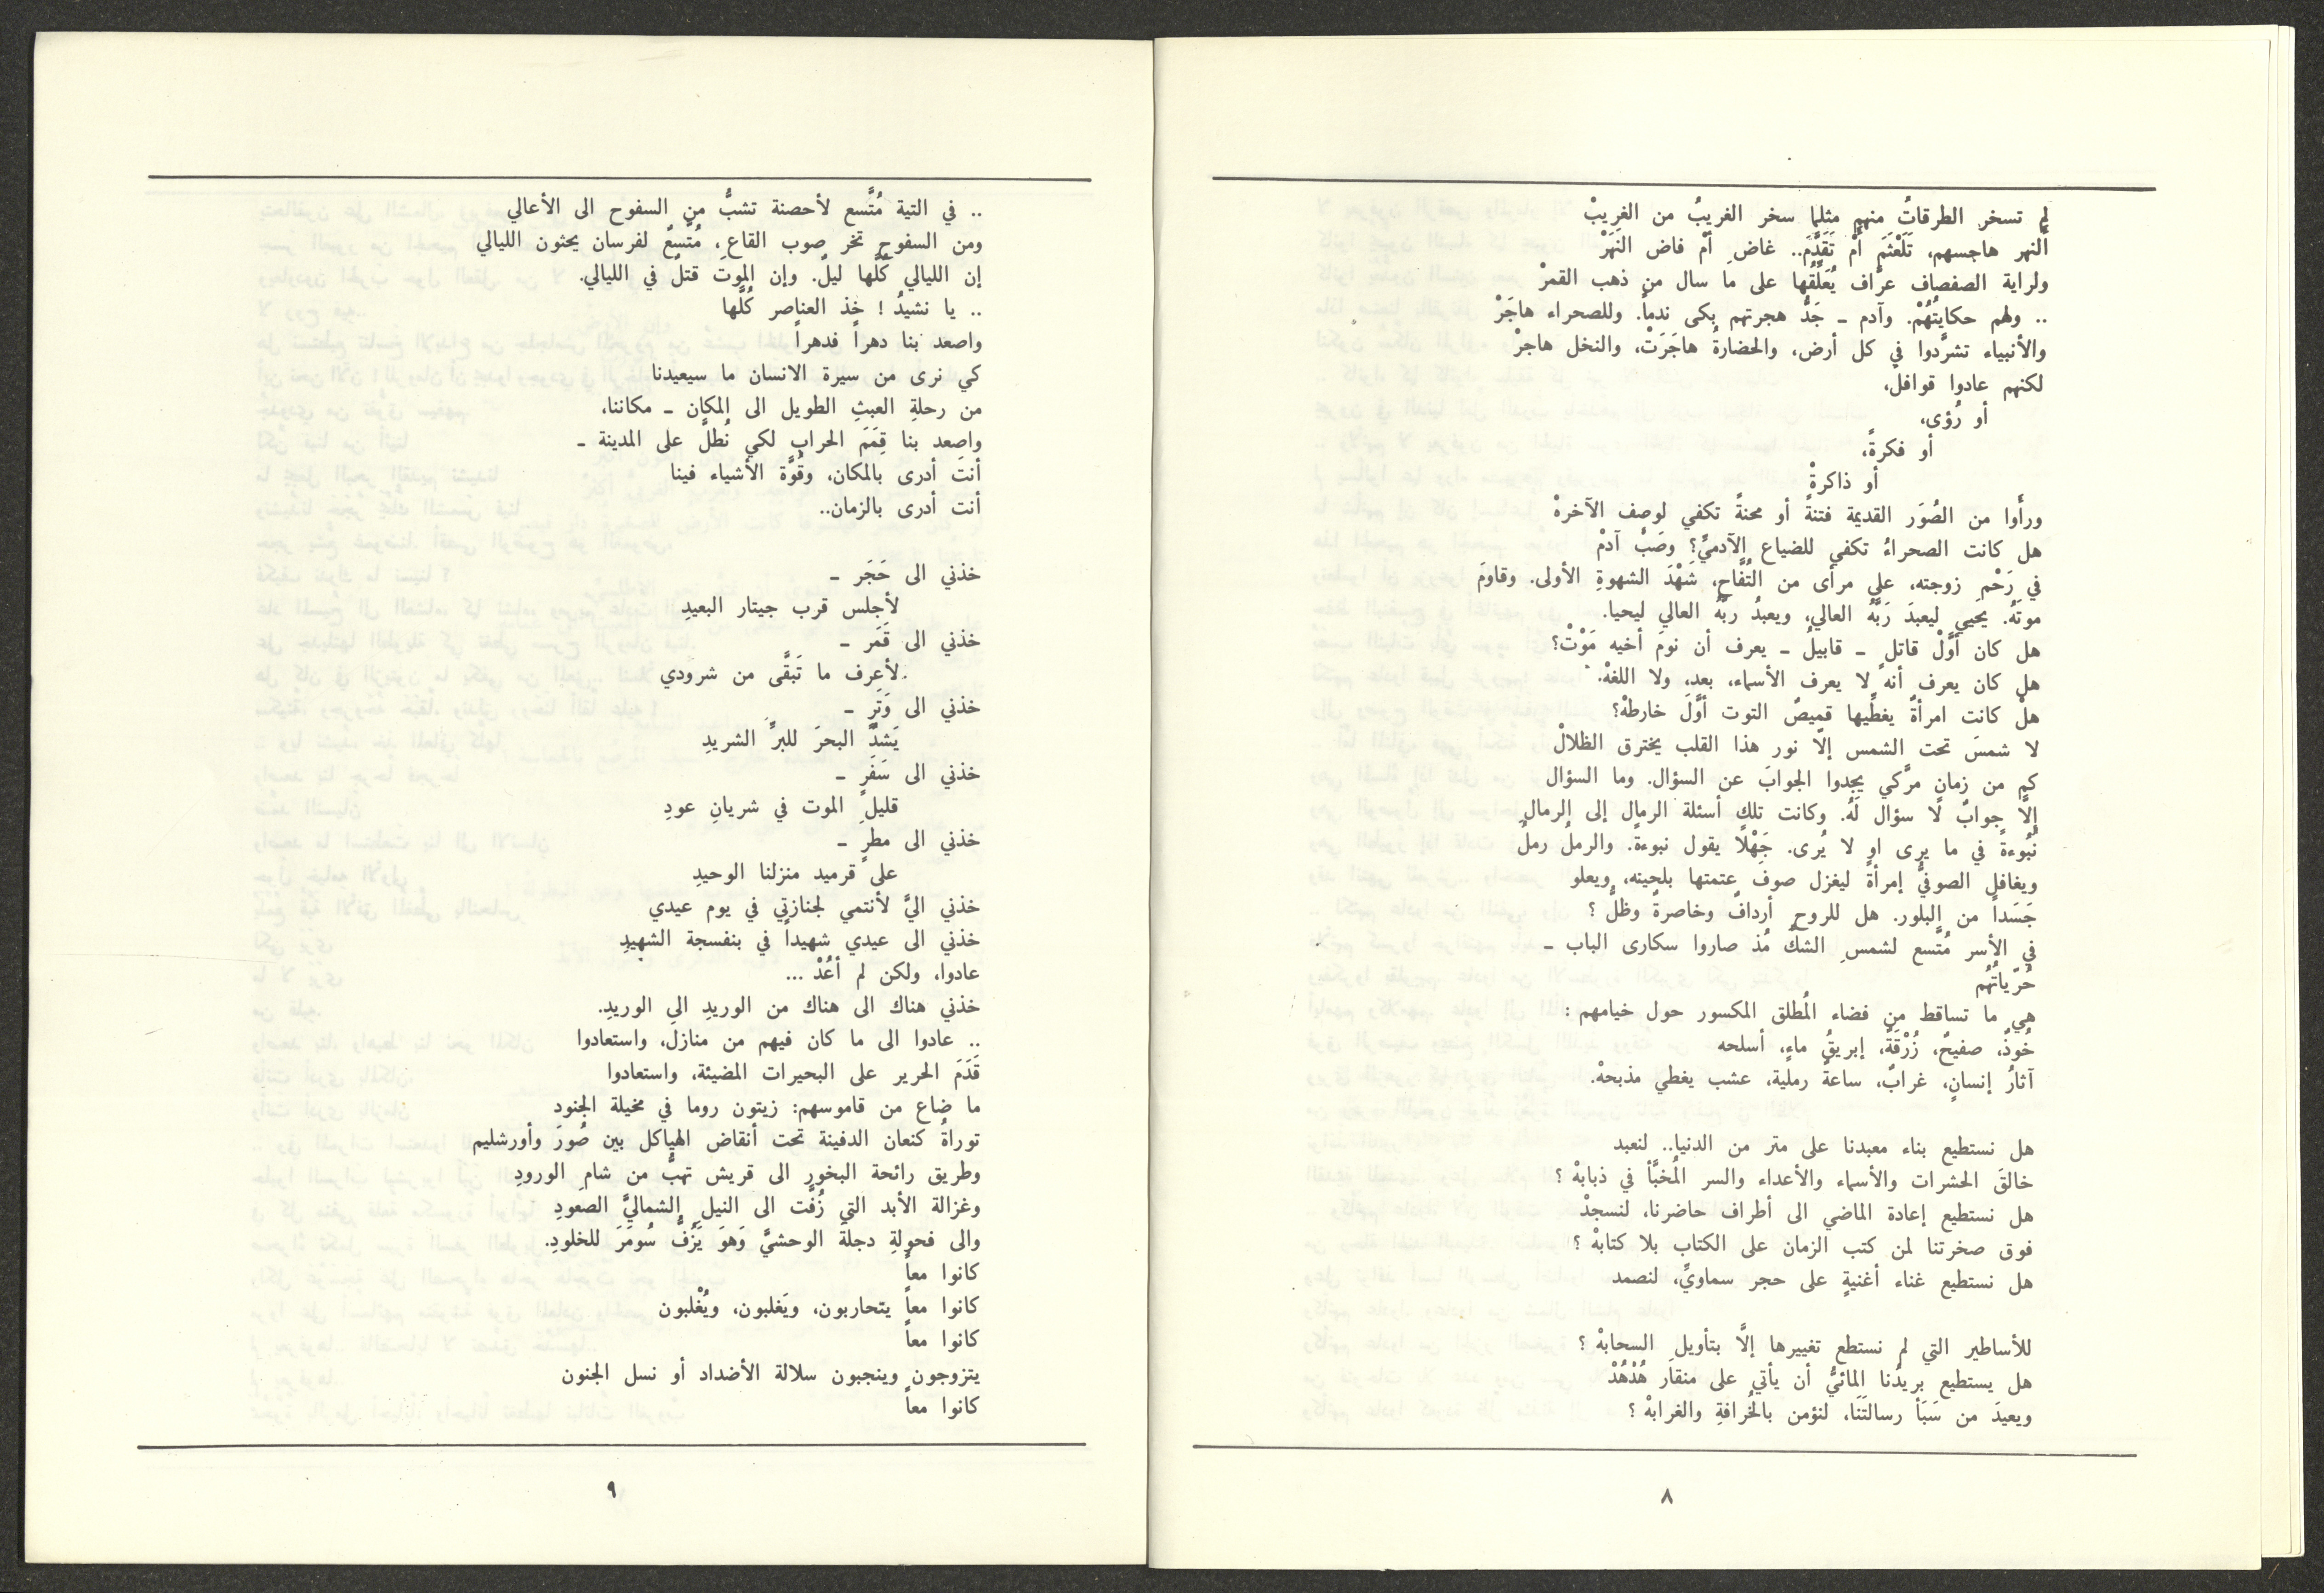 لم تسخر الطرقاتُ منهم مثلما سخر الغريبُ من الغرِيبْ
ألنهر هاجسهم، تَلَعْثَمَ أَمْ تَقَدَّمَ.. غاضِ أمْ فاض النهَرْ
ولراية الصفصاف عرَّاف يُعَلِّقُها على ما سال من ذهب القمرْ
.. ولهم حكايتُهُمْ. وآدم ـ جَدُّ هجرتهم بكى ندماً. وللصحراء هاجَرْ
والأنبياء تشرَّدوا في كل أرض، والحضارةُ هاجَرَتْ، والنخل هاجرْ
لكنهم عادوا قوافلَ،
أو رُؤى،
أو فكرةً،
أو ذاكرةْ
ورأَوا من الصُوَر القديمة فتنةً أو محنةً تكفي لوصف الآخرهْ
هل كانت الصحراءُ تكفي للضياع الآدميِّ؟ وصَبَّ آدمْ
في رَحْم زوجته، على مرأى من التُفَّاح، شَهْدَ الشهوةِ الأولى. وقاومَ
موتَهُ. يحَيي ليعبدَ رَبَّهُ العالي، ويعبدُ ربَّهُ العالي ليحيا.
هل كان أوَّلْ قاتلٍ ـ قابيلُ ـ يعرف أن نومَ أخيه مَوْتْ؟
هل كان يعرف أنه لا يعرف الأسماء، بعد، ولا اللغهْ.
هلْ كانت امرأةٌ يغطِّيها قميصُ التوت أوَّلَ خارطهْ؟
لا شمسَ تحت الشمس إلَّا نور هذا القلب يخترق الظلالْ
كم من زمانٍ مرَّكي يجدوا الجوابَ عن السؤال. وما السؤال
إلَّا جوابٌ لا سؤال لَهُ. وكانت تلك أسئلة الرمال إلى الرمالِ
نُبُوءةً في ما يرى او لا يُرى. جَهْلًا يقول نبوءةً. والرملُ رملُ
ويغافل الصوفيُّ إمرأةً ليغزل صوف عتمتها بلحيته، ويعلو
جَسَداً من البلور. هل للروح أردافٌ وخاصرةٌ وظلُّ ؟
في الأسر مُتَّسع لشمسِ الشكِّ مُذ صاروا سكارى الباب ـ
حُرّياتُهُم
هي ما تساقط من فضاء المُطلق المكسور حول خيامهم :
خُوذٌ، صفيحٌ، زُرْقَةٌ، إبريقُ ماءٍ، أسلحه
آثارُ إنسانٍ، غرابٌ، ساعةٌ رملية، عشب يغطي مذبحهْ.
هل نستطيع بناء معبدنا على متر من الدنيا.. لنعبد
خالقَ الحشرات والأسماء والأعداء والسر المُخبَّأ في ذبابهْ ؟
هل نستطيع إعادة الماضي الى أطراف حاضرنا، لنسجدْ
فوق صخرتنا لمن كتب الزمان على الكتاب بلا كتابهْ ؟
هل نستطيع غناء أغنيةٍ على حجر سماويٍّ، لنصمد
للأساطير التي لم نستطع تغييرها إلَّا بتأويلِ السحابهْ ؟
هل يستطيع بريدُنا المائيُّ أن يأتي على منقار هُدْهُدْ
ويعيدَ من سَبَأ رسالتَنَا، لنؤمن بالخُرافةِ والغرابهْ ؟
٨
.. في التية مُتَّسع لأحصنة تشبُّ من السفوح الى الأعالي
ومن السفوح تخر صوب القاع، مُتَّسعٌ لفرسان يحثون الليالي
إن الليالي كُلَّها ليلٌ. وإن الموتَ قتلٌ في الليالي.
.. يا نشيدُ ! خذ العناصر كُلَّها
واصعد بنا دهراً فدهراً
كي نرى من سيرة الانسان ما سيعيدنا
من رحلةِ العبثِ الطويل الى المكان ـ مكاننا،
واصعد بنا قِمَمَ الحراب لكي نُطلَّ على المدينة ـ
أنتَ أدرى بالمكان، وقُوَّة الأشياء فينا
أنت أدرى بالزمان..
خذني الى حَجَر ـ
لأجلس قرب جيتار البعيدِ
خذني الى قَمَر ـ
لأعرف ما تَبَقَّى من شرودي
خذني الى وَتَرٍ ـ
يَشدُّ البحرَ للبرِّ الشريدِ
خذني الى سَفَرٍ ـ
قليلِ الموت في شريانِ عودِ
خذني الى مطرٍ ـ
على قرميد منزلنا الوحيدِ
خذني اليَّ لأنتمي لجنازتي في يوم عيدي
خذني الى عيدي شهيداً في بنفسجة الشهيدِ
عادوا، ولكن لم أعُدْ ...
خذني هناك الى هناك من الوريدِ الى الوريدِ.
.. عادوا الى ما كان فيهم من منازلَ، واستعادوا
قَدَمَ الحرير على البحيرات المضيئة، واستعادوا
ما ضاع من قاموسهم: زيتون روما في مخيلة الجنود
توراةُ كنعان الدفينة تحت أنقاض الهياكل بين صُورَ وأورشليم
وطريق رائحة البخور الى قريش تهبُّ من شامِ الورودِ
وغزالة الأبد التي زُفَّت الى النيل الشماليِّ الصعودِ
والى فحولةِ دجلةَ الوحشيِّ وَهوَ يَزُفُّ سُومَرَ للخلودِ.
كانوا معاً
كانوا معاً يتحاربون، ويَغلبون، ويُغْلبون
كانوا معاً
يتزوجون وينجبون سلالة الأضداد أو نسل الجنون
كانوا معاً
٩